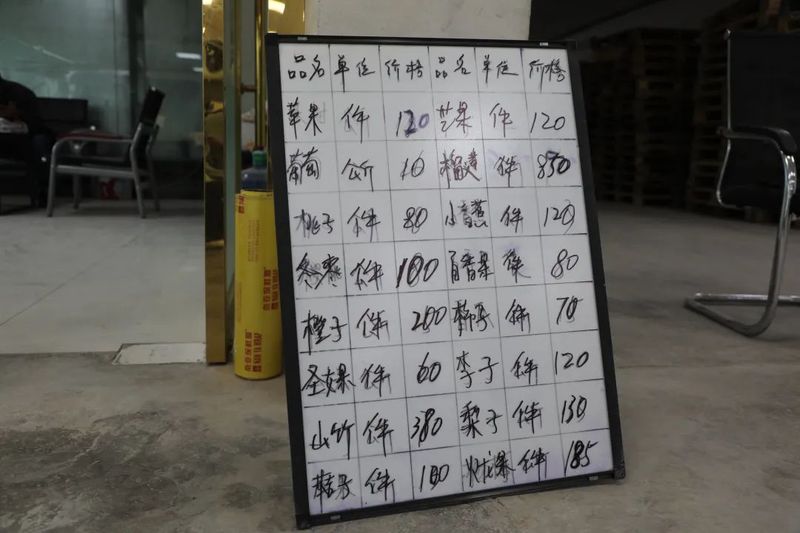 品名 单位 价格 品名 单位 价格
苹果 件 120 芒果 件 120
葡萄 斤 10 榴莲 件 850
桃子 件 80 小香蕉 件 120
冬枣 件 100 百香果 件 80
橙子 件 200 椰子 件 70
圣女果 件 60 李子 件 120
山竹 件 380 梨子 件 130
件 100 火龙果 件 185